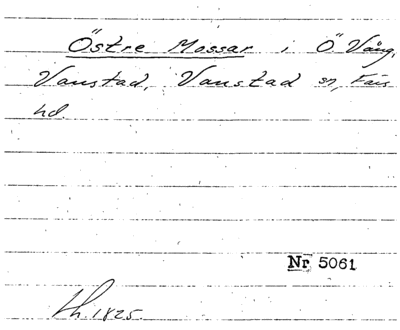 Östre Mossar i Ö Vång,
Vanstad, Vanstad sn, Färs
hd.
Nr 5061
Lh. 1825.